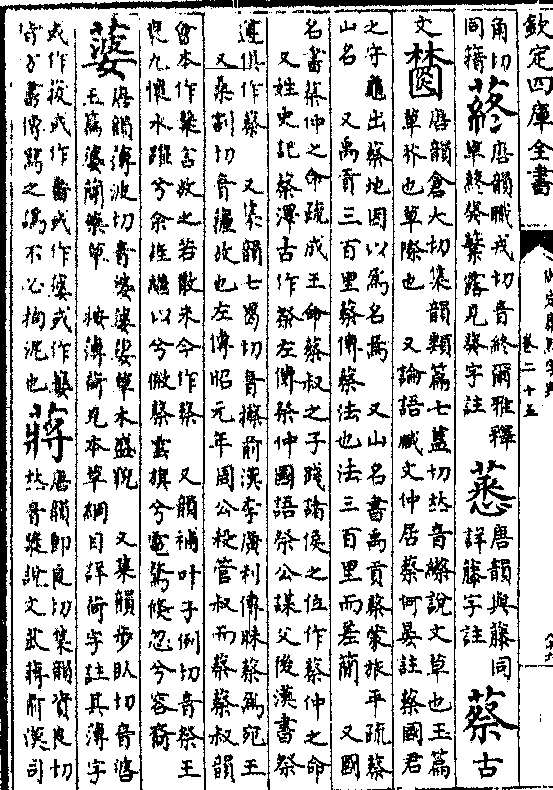 欽定四庫全書
卷二十五
角切
同籍
蔠
唐韻職戎切音終爾雅釋
草終葵蘩露見葵字註
唐韻與藤同
詳藤字註
蔡
古
文
唐韻倉大切集韻類篇七蓋切𠀤音縩說文草也玉篇
草芥也草際也 又論語臧文仲居蔡何晏註蔡國君
之守龜出蔡地因以為名焉 又山名書禹貢蔡蒙旅平疏蔡
山名 又禹貢三百里蔡傳蔡法也法三百里而差簡 又國
名書蔡仲之命疏成王命蔡叔之子踐諸侯之位作蔡仲之命
又姓史記蔡澤古作祭左傳祭仲國語祭公謀父後漢書祭
遵俱作蔡 又集韻七曷切音攃前漢李廣利傳昧蔡為宛王
又桑割切音 放也左傳昭元年周公殺管叔而蔡蔡叔韻
會本作𥻦言放之若散米今作蔡 又韻補叶子例切音祭王
褒九懷水躍兮余旌繼以兮微蔡雲旗兮電騖倏忽兮容裔
蔢
唐韻薄波切音婆蔢娑草木盛貌 又集韻步臥切音
玉篇蔢蕳藥草 按薄荷見本草綱目詳荷字註其薄字
或作菝或作 或作蔢或作
皆方書傳寫之譌不必拘泥也
蔣
唐韻即良切集韻資良切
𠀤音漿說文苽蔣前漢司